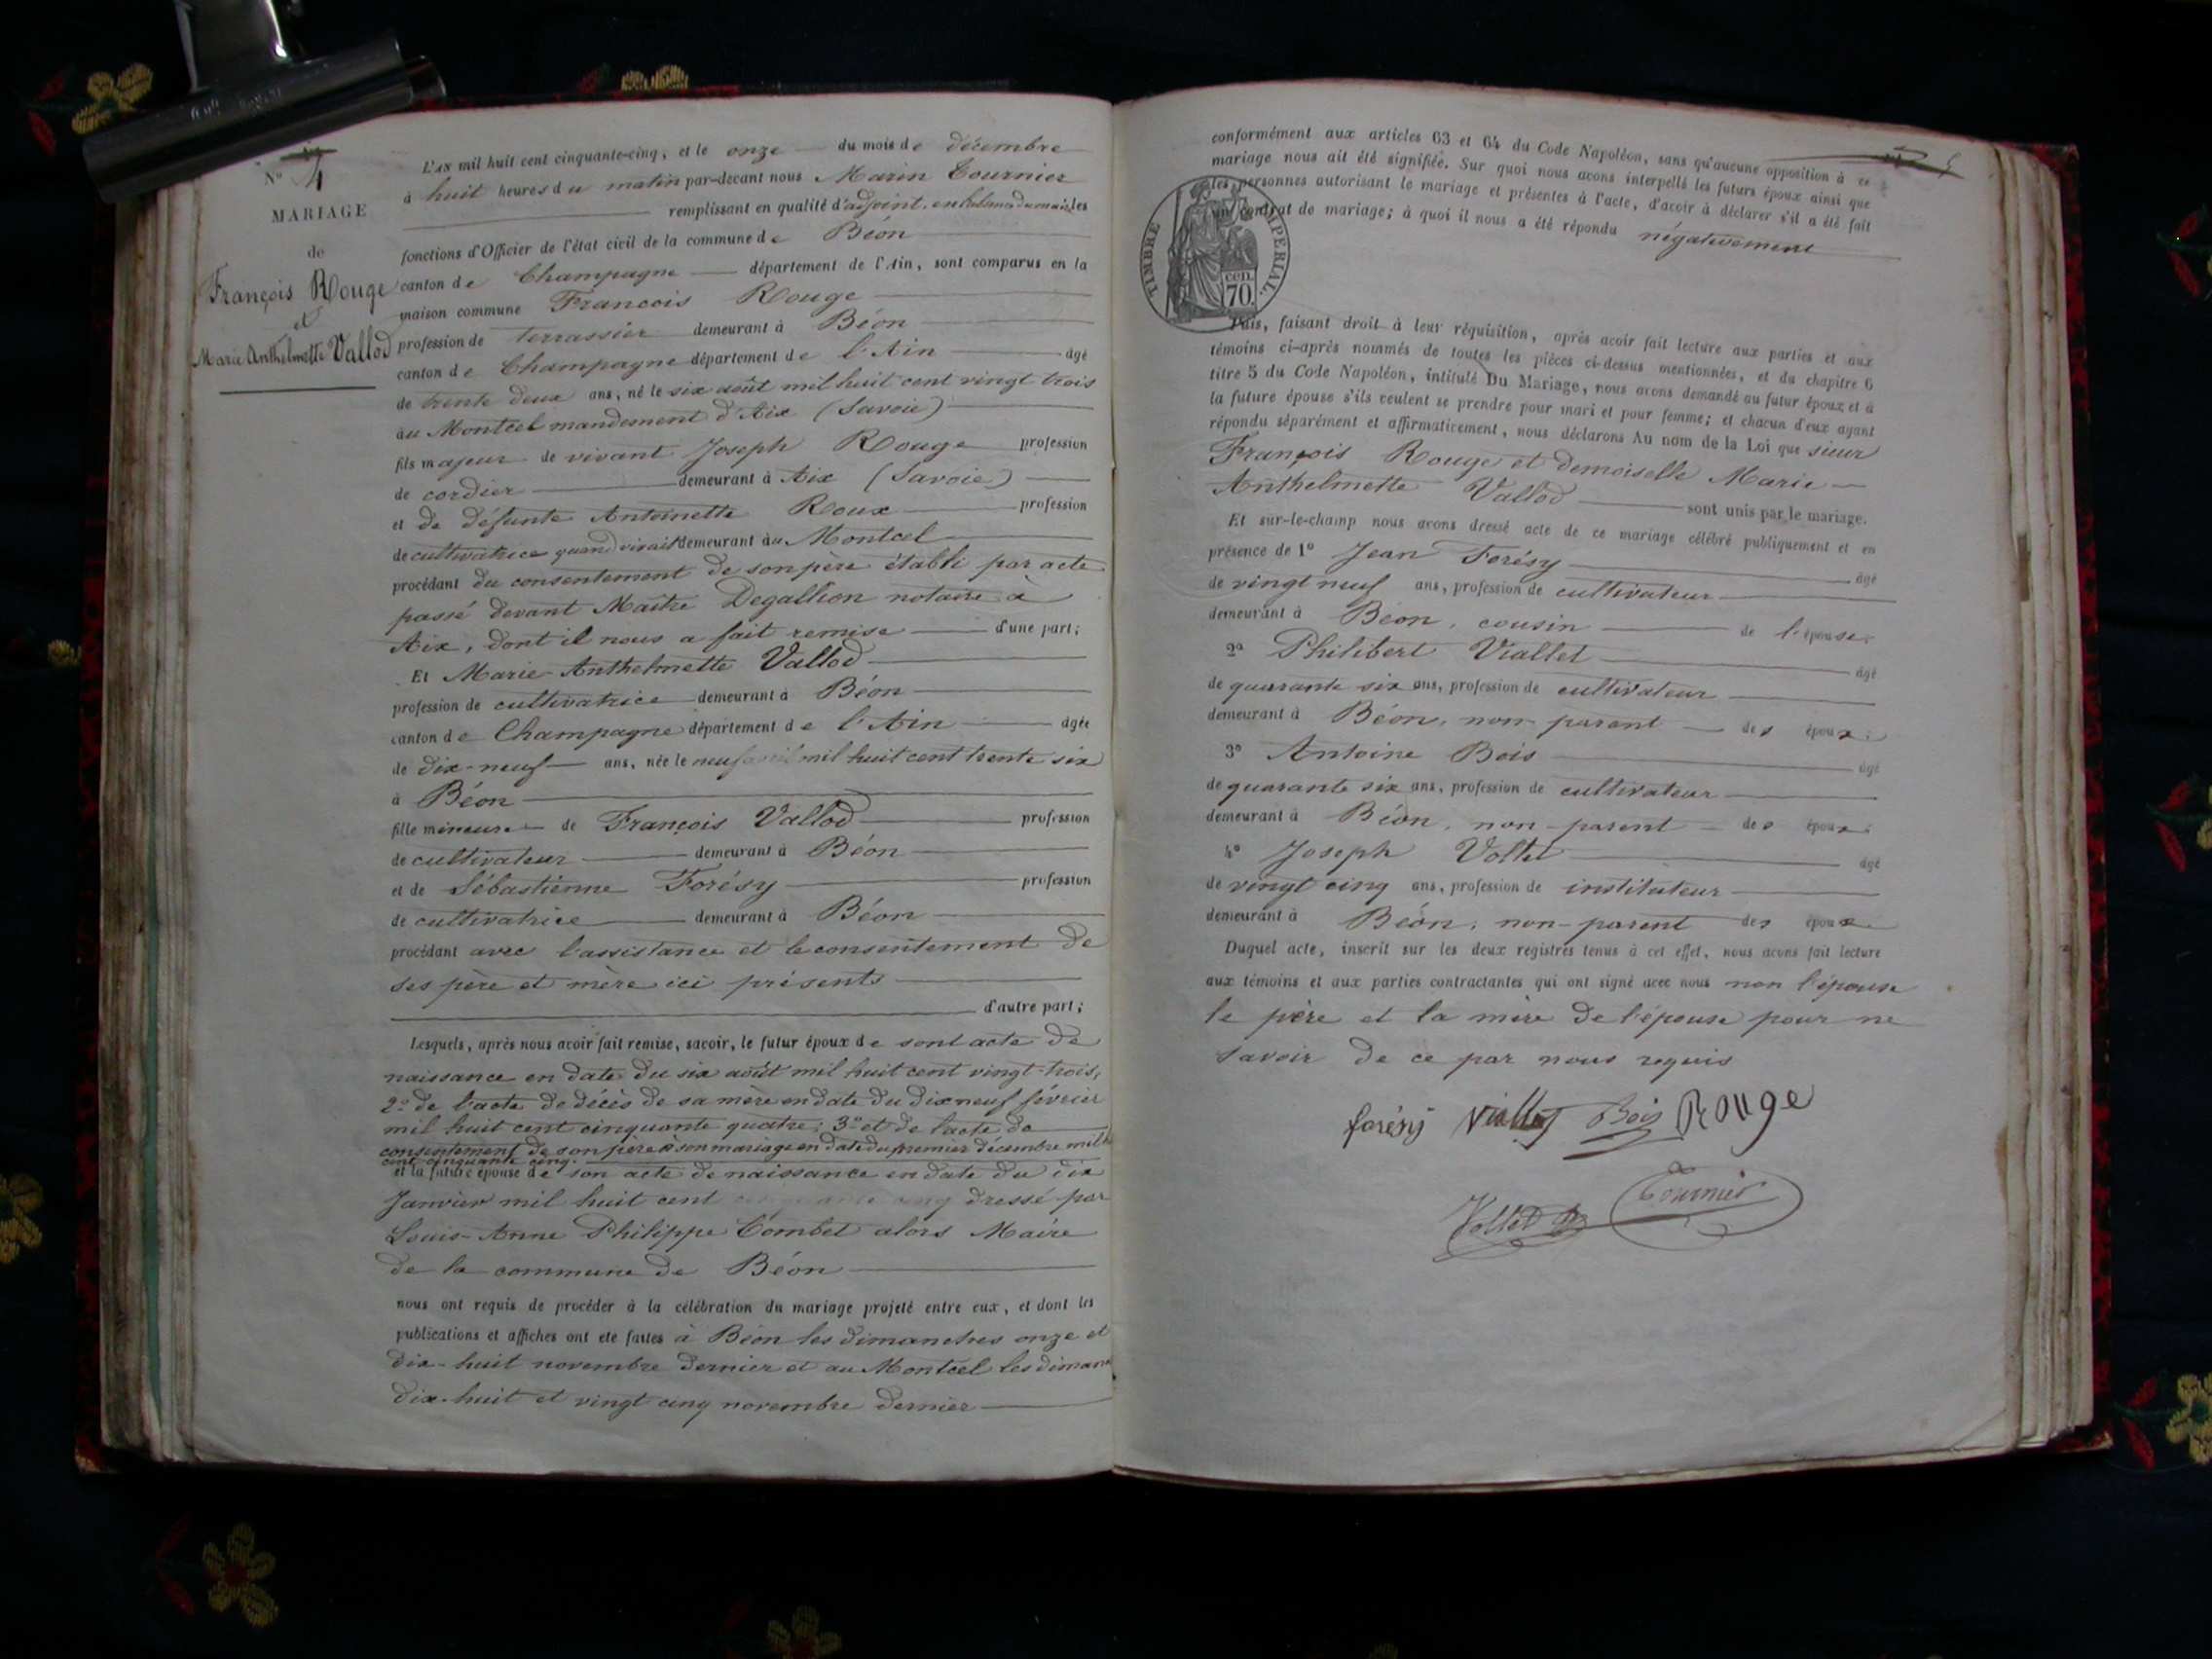 N° 4
MARIAGE
de
François Rouge
et
Marie Anthelmette Vallod
L'AN mil huit cent cinquante-cinq, et le onze du mois de décembre
à huit heures du matin par-devant nous Marin Tournier
remplissant en qualité d'adjoint, en l'absence du maire les
fonctions d'Officier de l'état civil de la commune de Béon
canton de Champagne département de l'Ain, sont comparus en la
maison commune François Rouge
profession de terrassier demeurant à Béon
canton de Champagne département de l'Ain âgé
de trente deux ans, né le six août mil huit cent vingt trois
au Montcel mandement d'Aix (Savoie)
fils majeur de vivant Joseph Rouge profession
de cordier demeurant à Aix (Savoie)
et de défunte Antoinette Roux profession
de cultivatrice quand vivait demeurant au Montcel
procédant du consentement de son père établi par acte
passé devant Maître Degallion notaire à
Aix, dont il nous a fait remise d'une part;
Et Marie Anthelmette Vallod
profession de cultivatrice demeurant à Béon
canton de Champagne département de l'Ain âgée
de dix-neuf ans, née le neuf mil huit cent trente six
à Béon
fille mineure de François Vallod profession
de cultivateur demeurant à Béon
et de Sébastienne Forésy profession
de cultivatrice demeurant à Béon
procédant avec l'assistance et le consentement de
ses père et mère ici présents
d'autre part;
Lesquels, après nous avoir fait remise, savoir, le futur époux de sont acte de
naissance en date du six août mil huit cent vingt-trois,
2° de l'acte de décès de sa mère en date du dix neuf février
mil huit cent cinquante quatre; 3° et de l'acte de
consentement de son père à son mariage en date du premier décembre mil h
cent cinquante cinq.
et la future épouse de son acte de naissance en date du dix
Janvier mil huit cent dressé par
Louis-Anne Philippe Combet alors Maire
de la commune de Béon
nous ont requis de procéder à la célébration du mariage projeté entre eux, et dont les
publications et affiches ont été faites à Béon les dimanches onze et
dix-huit novembre dernier et au Montcel les diman
dix-huit et vingt cinq novembre dernier
5
conformément aux articles 63 et 64 du Code Napoléon, sans qu'aucune opposition à ce
mariage nous ait été signifiée. Sur quoi nous avons interpellé les futurs époux ainsi que
les personnes autorisant le mariage et présentes à l'acte, d'avoir à déclarer s'il a été fait
un contrat de mariage; à quoi il nous a été répondu négativement
TIMBRE IMPERIAL.
cen.
70.
Puis, faisant droit à leur réquisition, après avoir fait lecture aux parties et aux
témoins ci-après nommés de toutes les pièces ci-dessus mentionnées, et du chapitre 6
titre 5 du Code Napoléon, intitulé Du Mariage, nous avons demandé au futur époux et à
la future épouse s'ils veulent se prendre pour mari et pour femme; et chacun d'eux ayant
répondu séparément et affirmativement, nous déclarons Au nom de la Loi que sieur
François Rouge et demoiselle Marie
Anthelmette Vallod sont unis par le mariage.
Et sur-le-champ nous avons dressé acte de ce mariage célébré publiquement et en
présence de 1° Jean Forésy âgé
de vingt neuf ans, profession de cultivateur
demeurant à Béon, cousin de l'épouse;
2° Philibert Viallet âgé
de quarante six ans, profession de cultivateur
demeurant à Béon, non parent des époux;
3° Antoine Bois âgé
de quarante six ans, profession de cultivateur
demeurant à Béon, non-parent des époux;
4° Joseph Voltet âgé
de vingt cinq ans, profession de instituteur
demeurant à Béon, non-parent des époux
Duquel acte, inscrit sur les deux registres tenus à cet effet, nous avons fait lecture
aux témoins et aux parties contractantes qui ont signé avec nous non l'épouse
le père et la mère de l'épouse pour ne
savoir de ce par nous requis
forésy Viallet Bois Rouge
Tournier